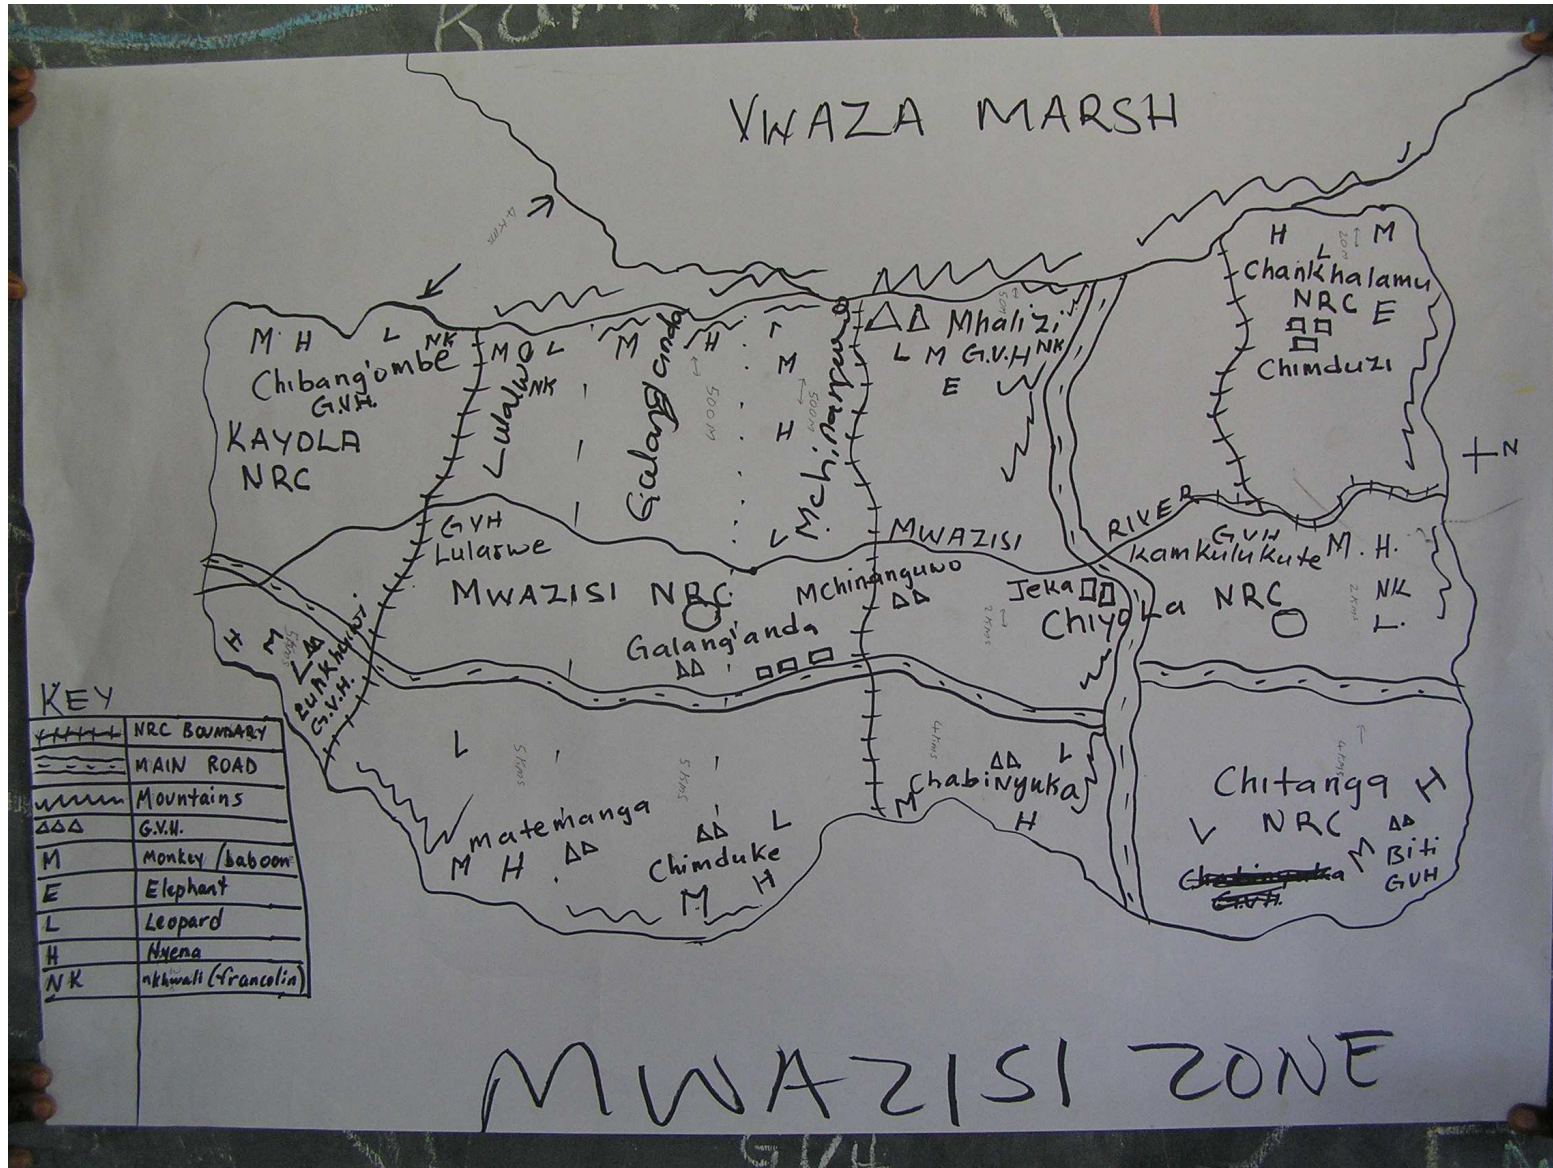 VWAZA MARSH
4 Kms
M H L NK
Chibang'ombe
G.V.H.
KAYOLA
NRC
M L
NK
Lulalwe
M H
Galang'anda
500M
M
H
500M
Mchinanguwo
Mhalizi
L M G.V.H NK
E
50M
H L M
20M
Chankhalamu
NRC E
Chimduzi
N
GVH
Lularwe
MWAZISI RIVER
GVH
Kamkulukute M. H.
NRC NK
2 Kms L.
MWAZISI NRC
Mchinanguwo
Jeka
Chiyola
2 Kms
Galang'anda
H M L
5Kms
Zunkhayiwi
G.V.H.
L
5 Kms
5 Kms
Matemanga
M H
Chimduke
L
M H
4 Kms
L
Chabinyuka
M H
4 Kms
Chitanga
NRC
H
L
M
Biti
GVH
Chabinyuka
G.V.H.
KEY
NRC BOUNDARY
MAIN ROAD
Mountains
G.V.H.
M Monkey/baboon
E Elephant
L Leopard
H Hyena
NK nkhwali (francolin)
MWAZISI ZONE
GVH